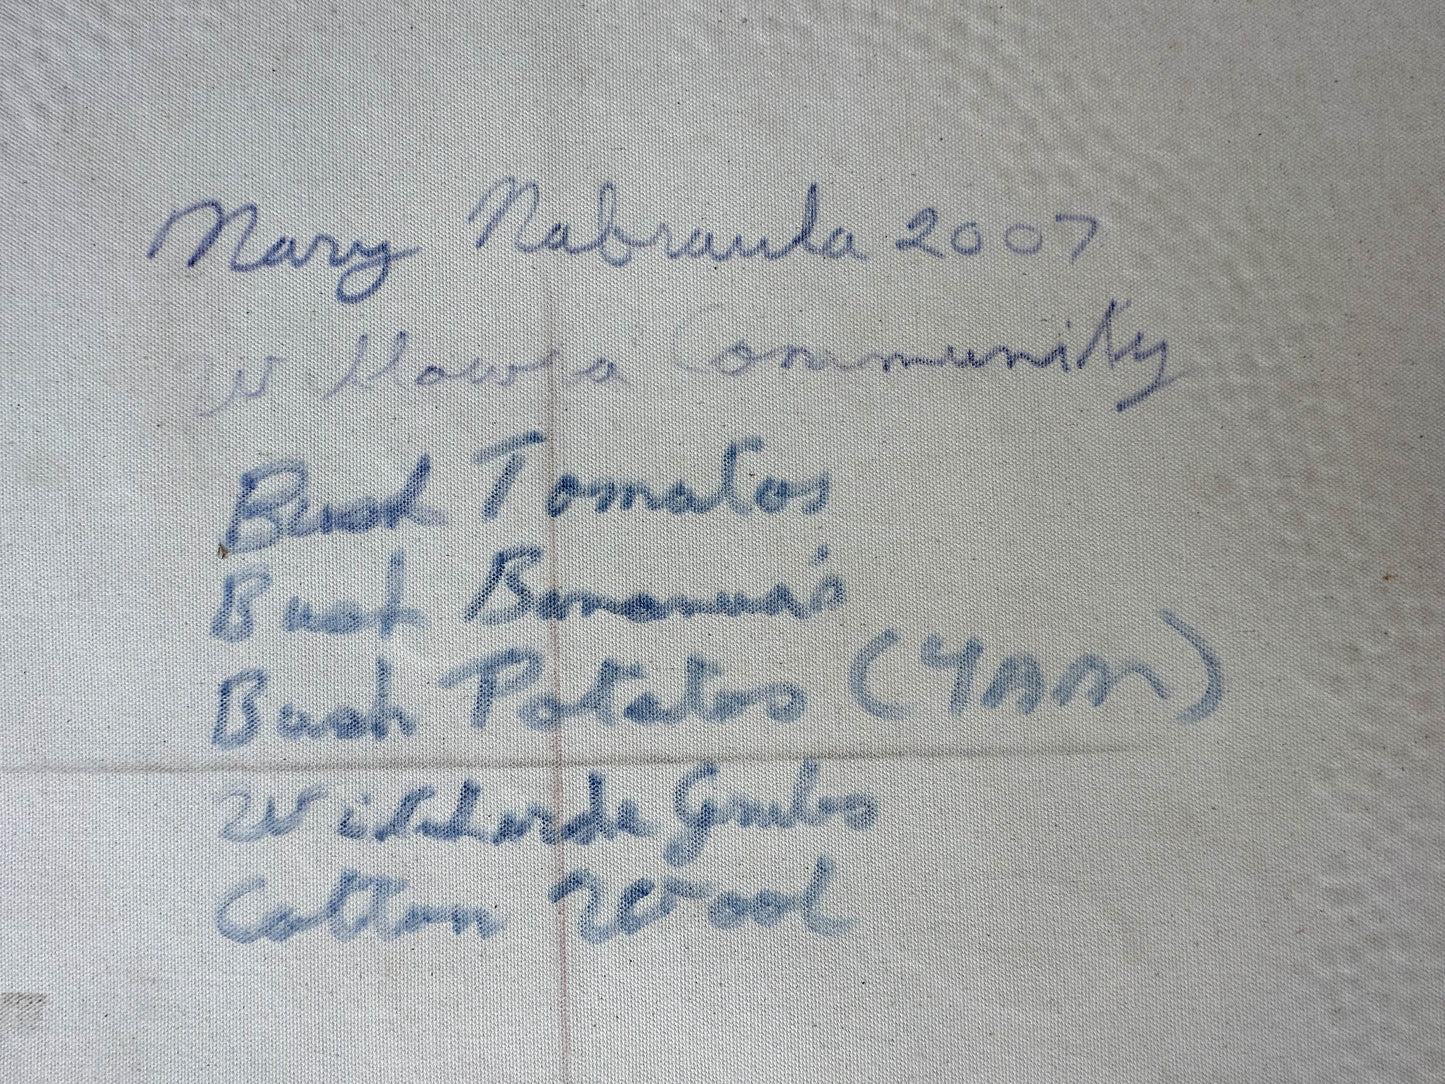 Mary Nabraula 2007
Willowra Community
Bush Tomatos
Bush Bananna's
Bush Potatos (YAM)
Grubs
Cotton Wool